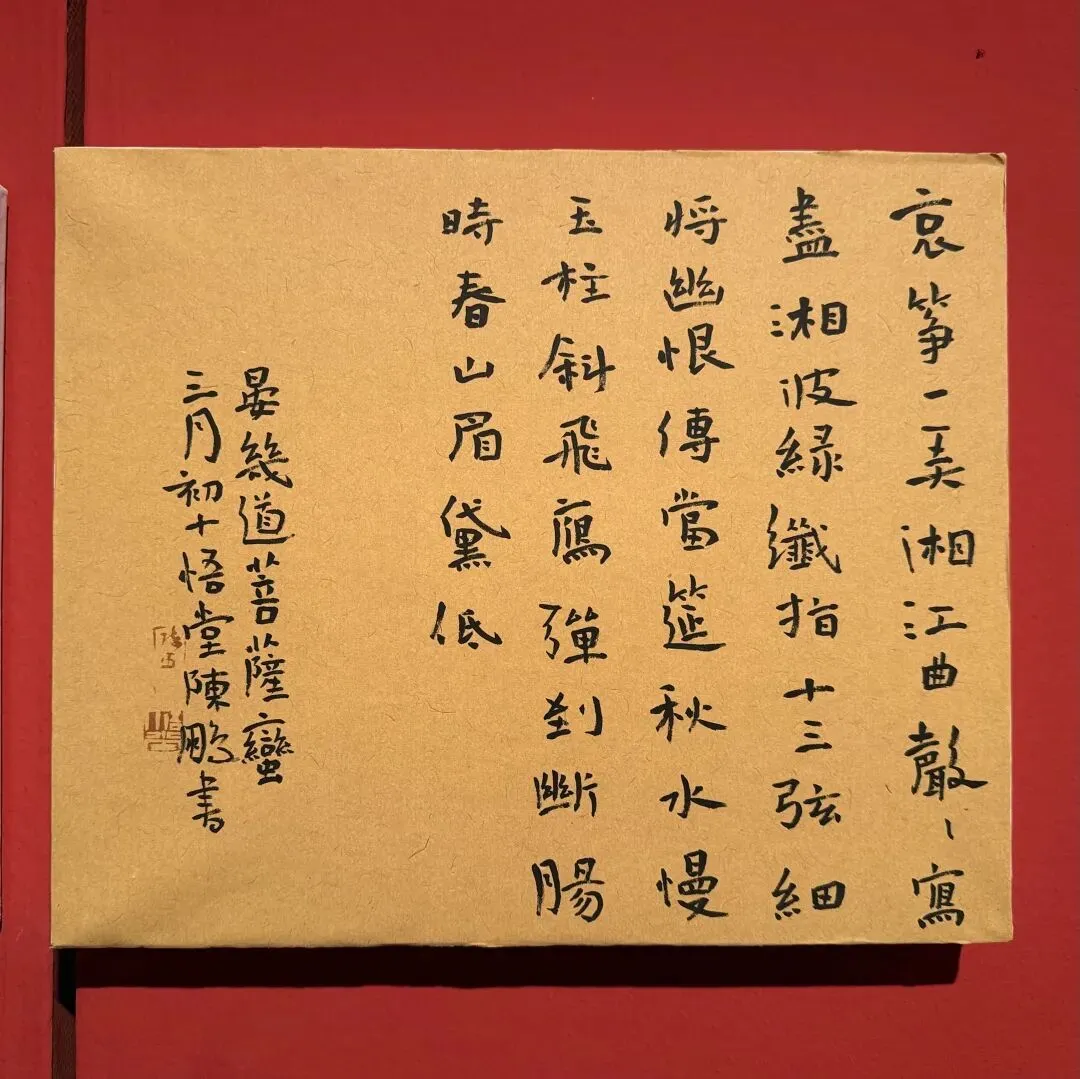 哀箏一弄湘江曲聲丶寫
盡湘波緑纖指十三弦細
將幽恨傳當筵秋水慢
玉柱斜飛鴈彈到斷腸
時春山眉黛低
晏幾道菩薩蠻
三月初十悟堂陳鵬書